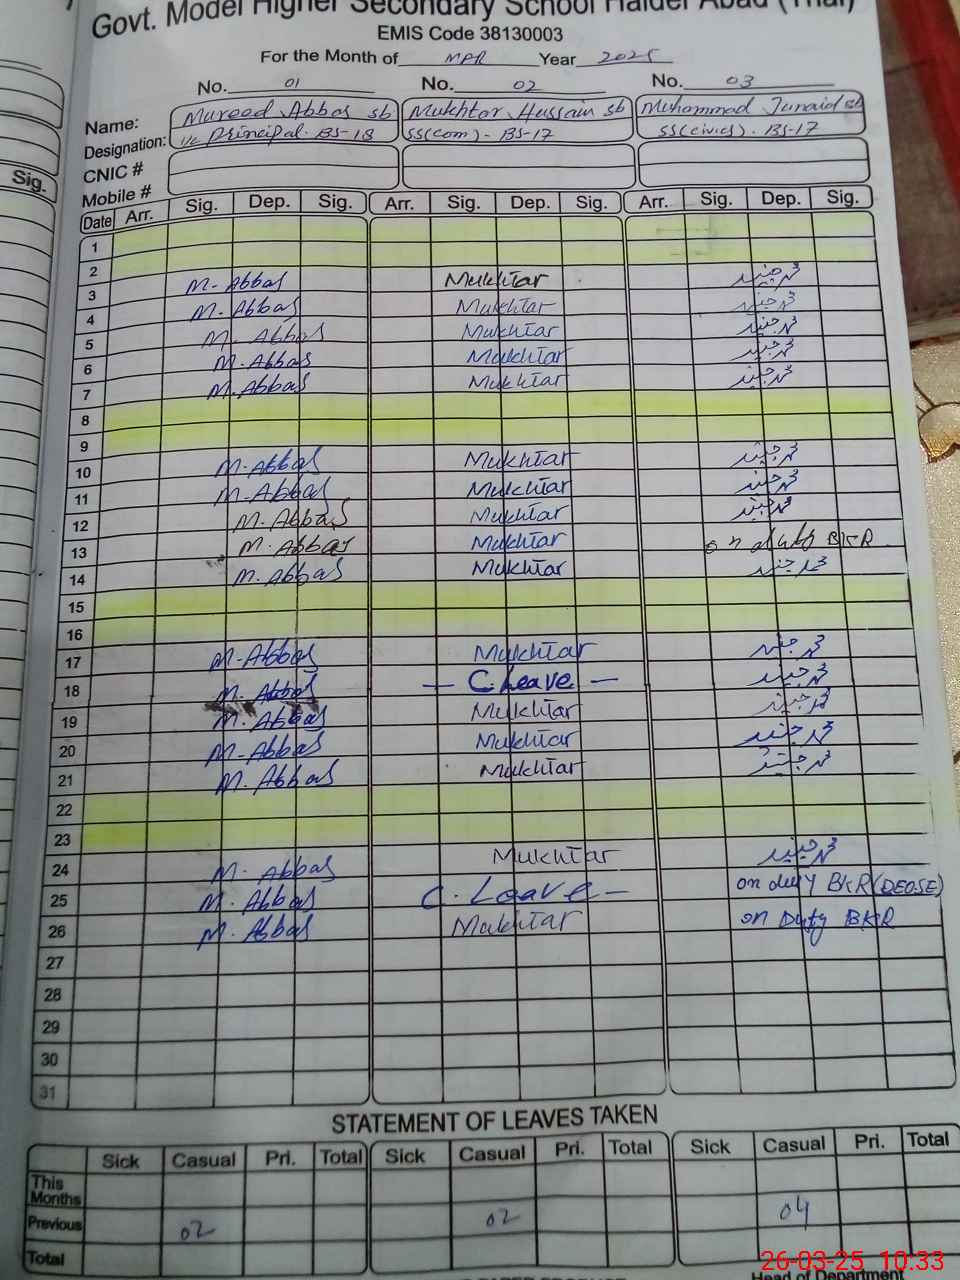 Govt. Model Higher Secondary School Haider Abad (Thal)
EMIS Code 38130003
For the Month of MAR Year 2025
No. 01 No. 02 No. 03
Name: Mureed Abbas sb Mukhtar Hussain sb Muhammad Junaid sb
Designation: I/c Principal. BS-18 SS(com) - BS-17 SS(civics). BS-17
CNIC #
Mobile #
Sig.
Date Arr. Sig. Dep. Sig. Arr. Sig. Dep. Sig. Arr. Sig. Dep. Sig.
1
2
3 M. Abbas Mukhtar محمد جنید
4 M. Abbas Mukhtar محمد جنید
5 M. Abbas Mukhtar محمد جنید
6 M. Abbas Mukhtar محمد جنید
7 M. Abbas Mukhtar محمد جنید
8
9
10 M. Abbas Mukhtar محمد جنید
11 M. Abbas Mukhtar محمد جنید
12 M. Abbas Mukhtar محمد جنید
13 M. Abbas Mukhtar on duty BKR
14 M. Abbas Mukhtar محمد جنید
15
16
17 M. Abbas Mukhtar محمد جنید
18 M. Abbas - C. Leave - محمد جنید
19 M. Abbas Mukhtar محمد جنید
20 M. Abbas Mukhtar محمد جنید
21 M. Abbas Mukhtar محمد جنید
22
23
24 M. Abbas Mukhtar محمد جنید
25 M. Abbas C. Leave - on duty BKR (DEOSE)
26 M. Abbas Mukhtar on Duty BKR
27
28
29
30
31
STATEMENT OF LEAVES TAKEN
Sick Casual Pri. Total Sick Casual Pri. Total Sick Casual Pri. Total
This Months
Previous 02 02 04
Total
26-03-25 10:33
Head of Department